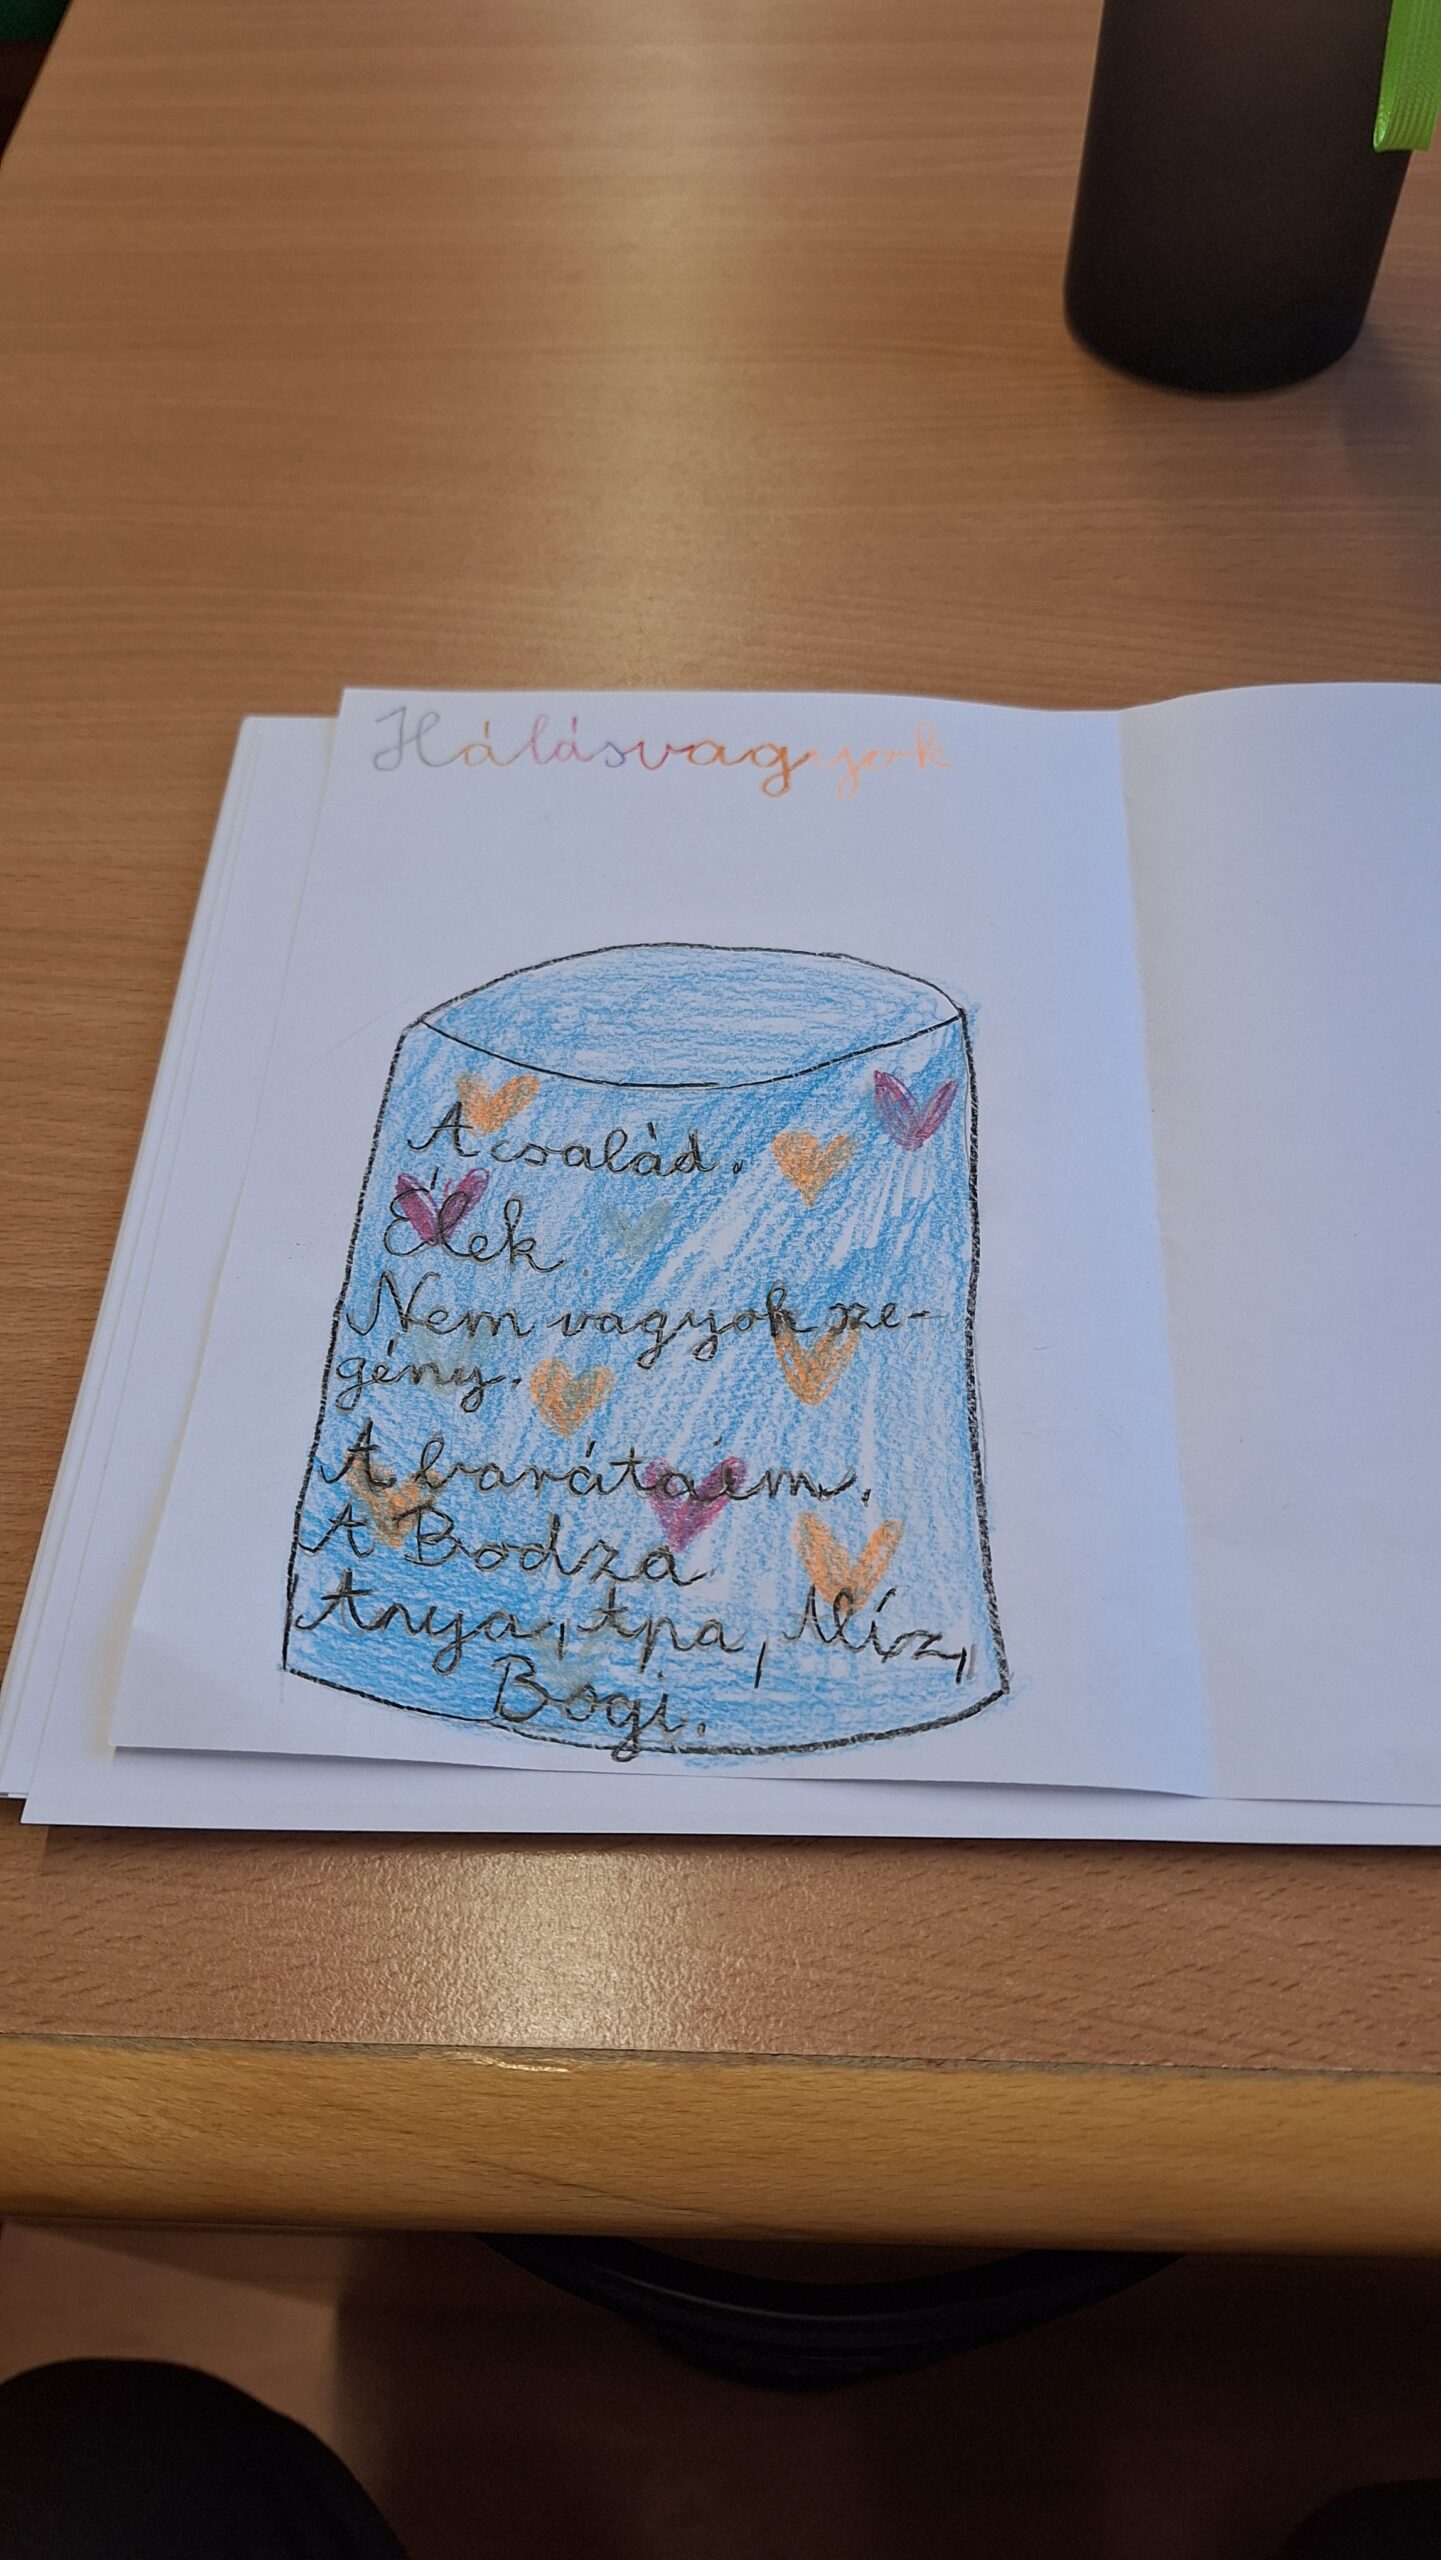 Hálásvagyok
A család.
Élek.
Nem vagyok sze-
gény.
A barátaim.
A Bodza.
Anya, Apa, Alíz,
Bogi.